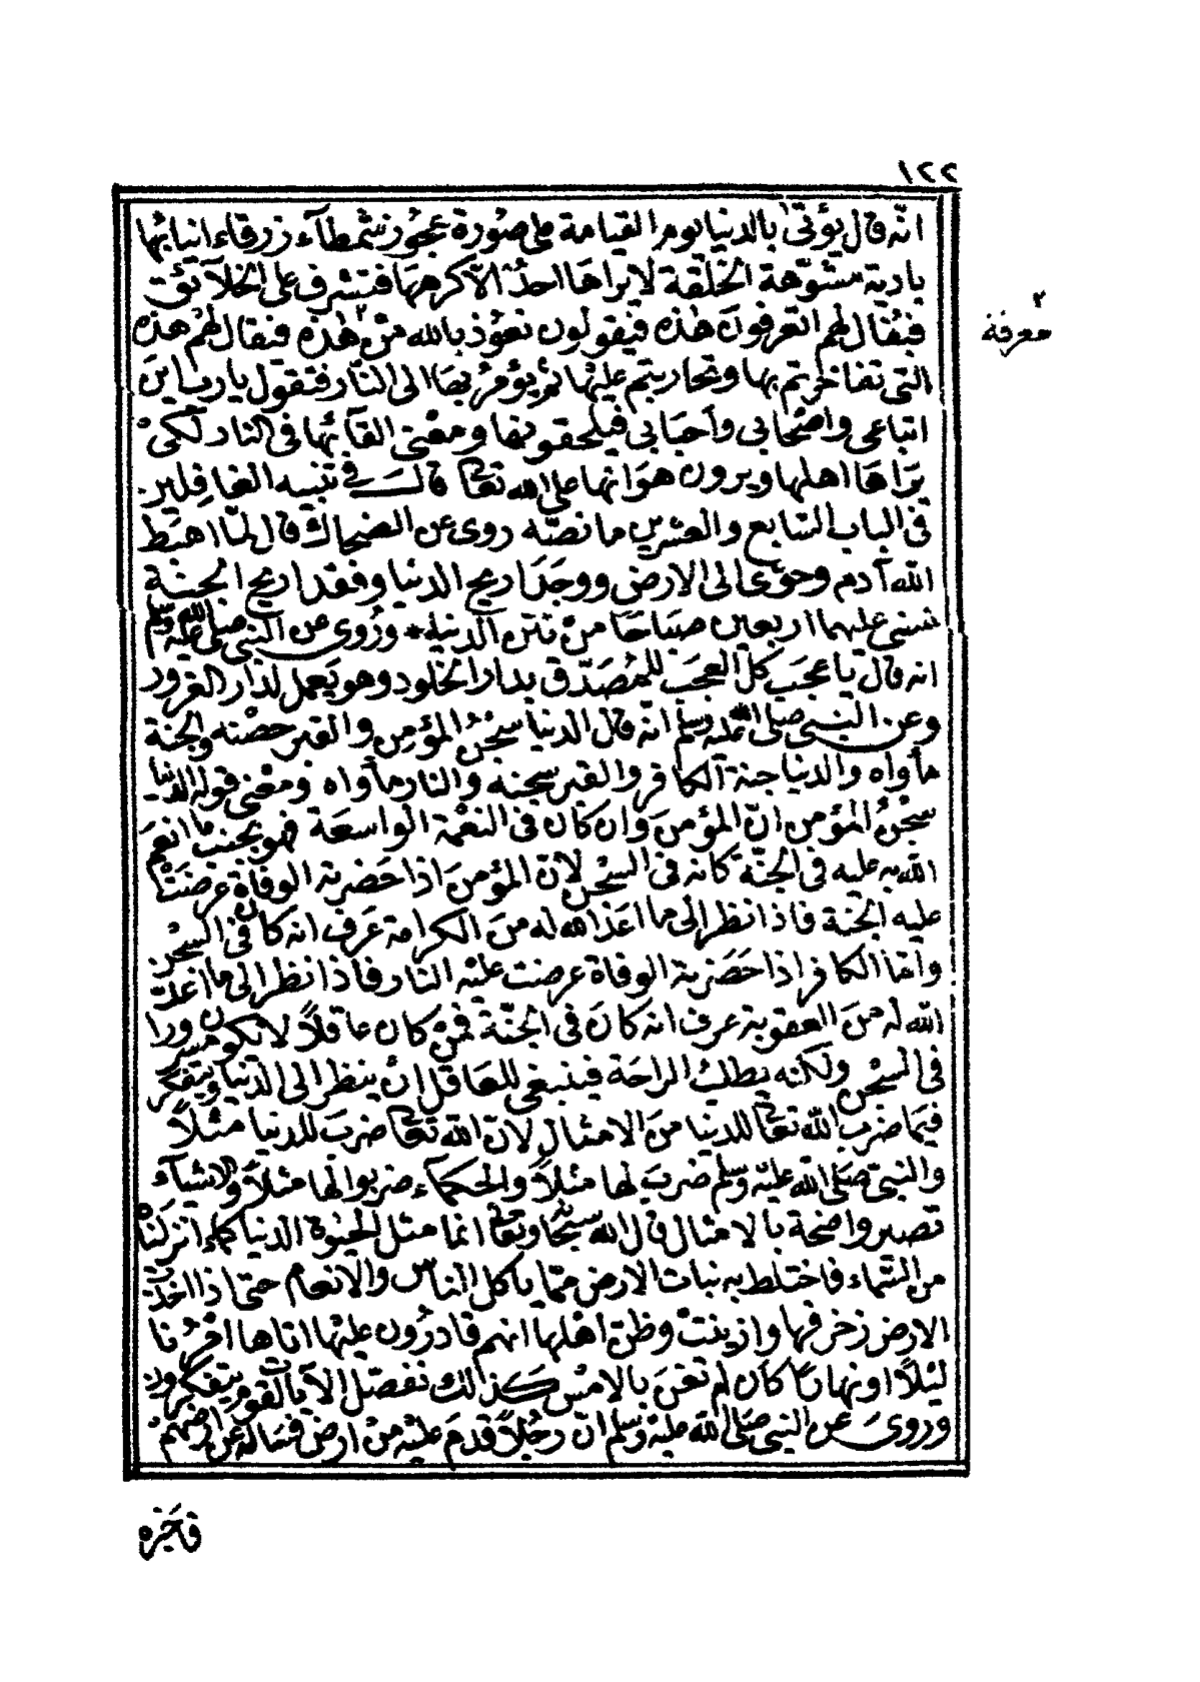 ١٢٢
انّه قال يؤتىٰ بالدنيا يوم القيامة على صُورة عجوز شمطآء زرقاء انيابُها
بادية مشوّهة الخلقة لا يراها احدٌ الّا كرهها فتشرف على الخلآئق
فيُقال لهم اتعرفونَ هٰذه فيقولون نعوذ بالله منْ ٢ هٰذه فيقال لهُم هذه
٢
معرفة
التى تفاخرتم بها وتحاربتم عليْها ثم يؤمرُ بهَا الى النّار فتقول يارب اينَ
اتباعى واصْحابى وأحبابى فيلحقونها ومعْنى القآئها فى النار لكىْ
يرَاهَا اهلها ويرون هوَانها على الله تعالى قالــــ فى تنبيه الغافلين
فى الباب السّابع والعشرين ما نصّه روى عن الضحاك قال لمّا اهبط
الله آدم وحوّى الى الارض ووجَدَا ريح الدنيا وفقدا ريح الجنّة
غشى عليهما اربعين صبَاحًا منْ نتن الدنيا * ورُوى عن النّبى صلى الله عليه وسلم
انه قال يا عجَب كلّ العجَب للمُصَدّق بدار الخلود وهو يَعمل لدار الغرور
وعن النبى صلى الله عليه وسلم انّه قال الدنيا سجْنُ المؤمِن والقبر حصْنه والجنة
مأواه والدنيا جنة الكافر والقبر سجنه والنار مأواه ومعْنى قوله الدنيا
سجْنُ المؤمن انّ المؤمنَ وان كان فى النعْمة الواسعَة فهو بجنب ما انعمَ
الله به عليه فى الجنّة كانه فى السجْن لأنّ المؤمنَ اذا حَضرته الوفاة عرضَتْ
عليه الجنة فاذا نظر الى ما اعَدّ الله له منَ الكرامة عَرف انه كان فى السجْن
وامّا الكافر اذا حَضرَته الوفاة عرضت عليْه النار فاذا نظر الى ما اعدّ
الله له منَ العقوبة عرف انه كانَ فى الجنّة فمنْ كان عاقلاً لا يكون مسرورا
فى السجْن ولكنه يطلبُ الراحَة فينبغى للعَاقل انْ ينظر الى الدنيا ويتفكر
فيمَا ضربَ الله تعالى للدنيا منَ الامثال لانّ الله تعالى ضربَ للدنيا مثلاً
والنبىّ صَلى الله عليْه وسلم ضربَ لها مثلاً والحكمآء ضربوا لها مثلاً والاشيآء
تصير واضحة بالامثال قال الله سبحانه وتعالى انما مثل الحيٰوة الدنيا كماء انزلنٰاهُ
من السّمآء فاختلط به نبات الارض ممّا يأكل الناس والانعام حتى اذا اخذت
الارض زخرفها وازينتْ وظنّ اهْلها انهم قادرُون عليْها اتاها امْرُنا
ليْلاً او نهارًا كأن لم تغنَ بالامْس كذالك نفصّل الآيات لقوم يتفكرون
وروىَ عن النبى صَلى الله عليْه وسلم انّ رجُلاً قدمَ عليْه منْ ارض فسَاله عن ارضهمْ
فاخبره